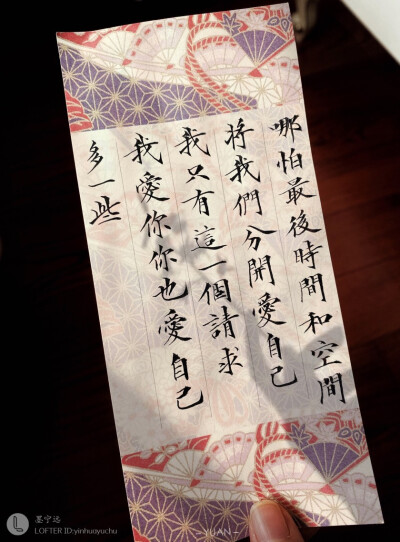 哪怕最後時間和空間
將我們分開愛自己
我只有這一個請求
我愛你你也愛自己
多一些
墨宁远
LOFTER ID:yinhuayuchu
YUAN